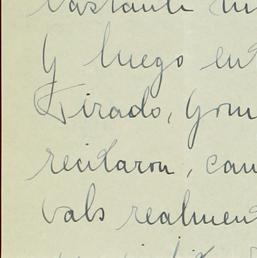 bastante
y luego en
Tirado, Gom
recitaron, can
vals realmen